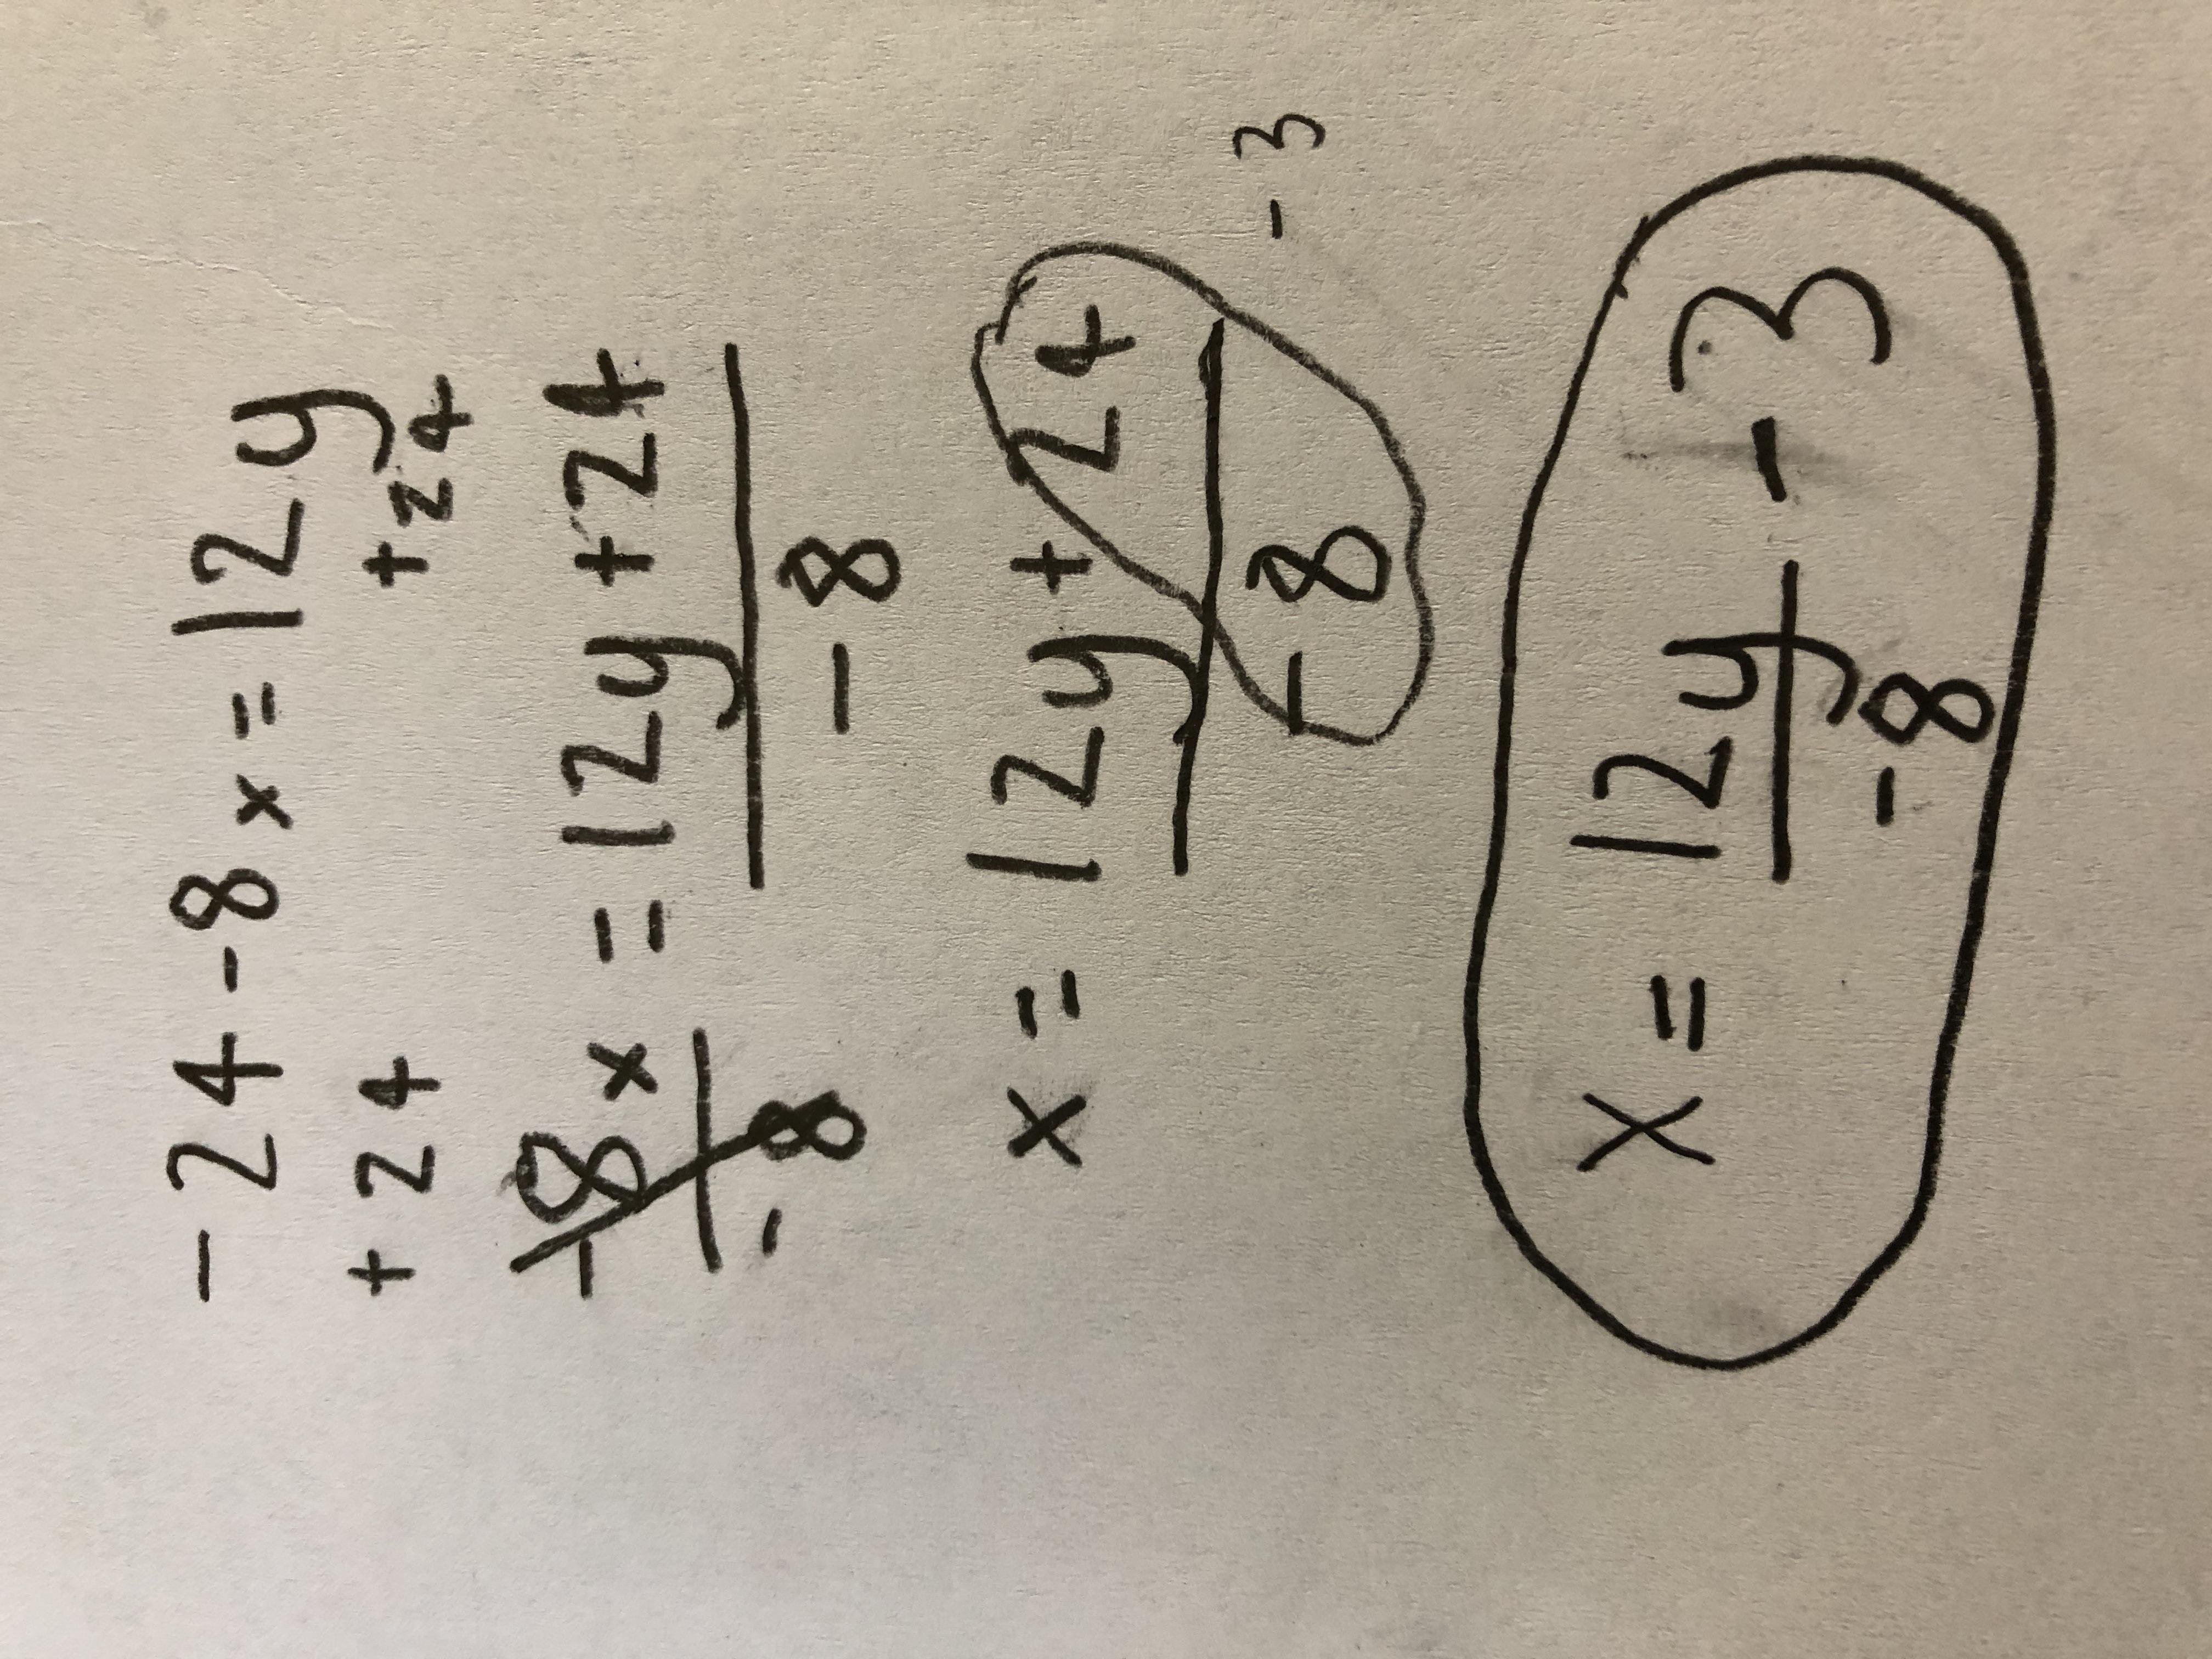 -24-8x=12y
+24 +24
-8x = 12y+24
-8 -8
x = 12y+24
-8 -3
x = 12y - 3
-8